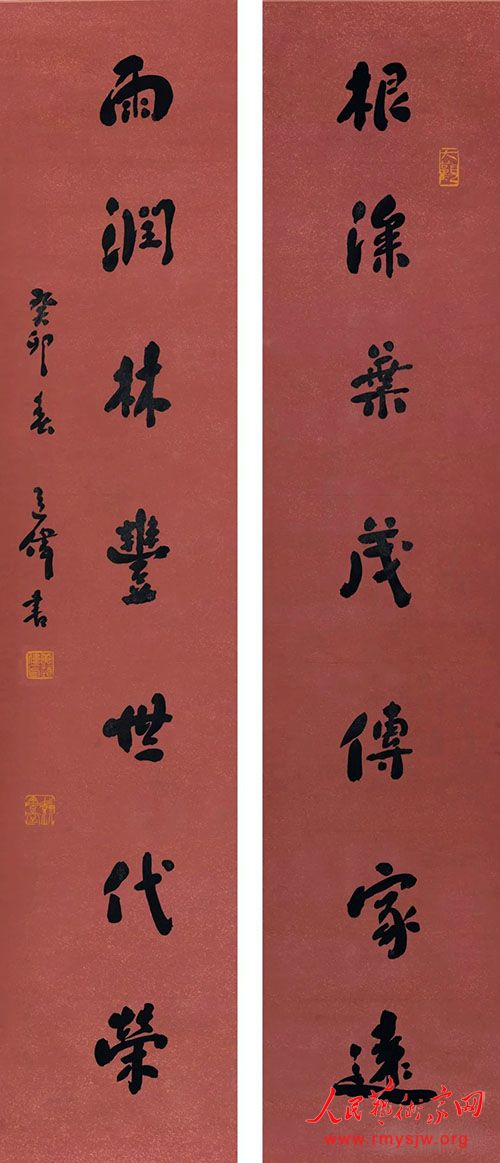 根深葉茂傳家遠
雨潤林豐世代榮
癸卯春
書
人民藝術家网
www.rmysjw.org